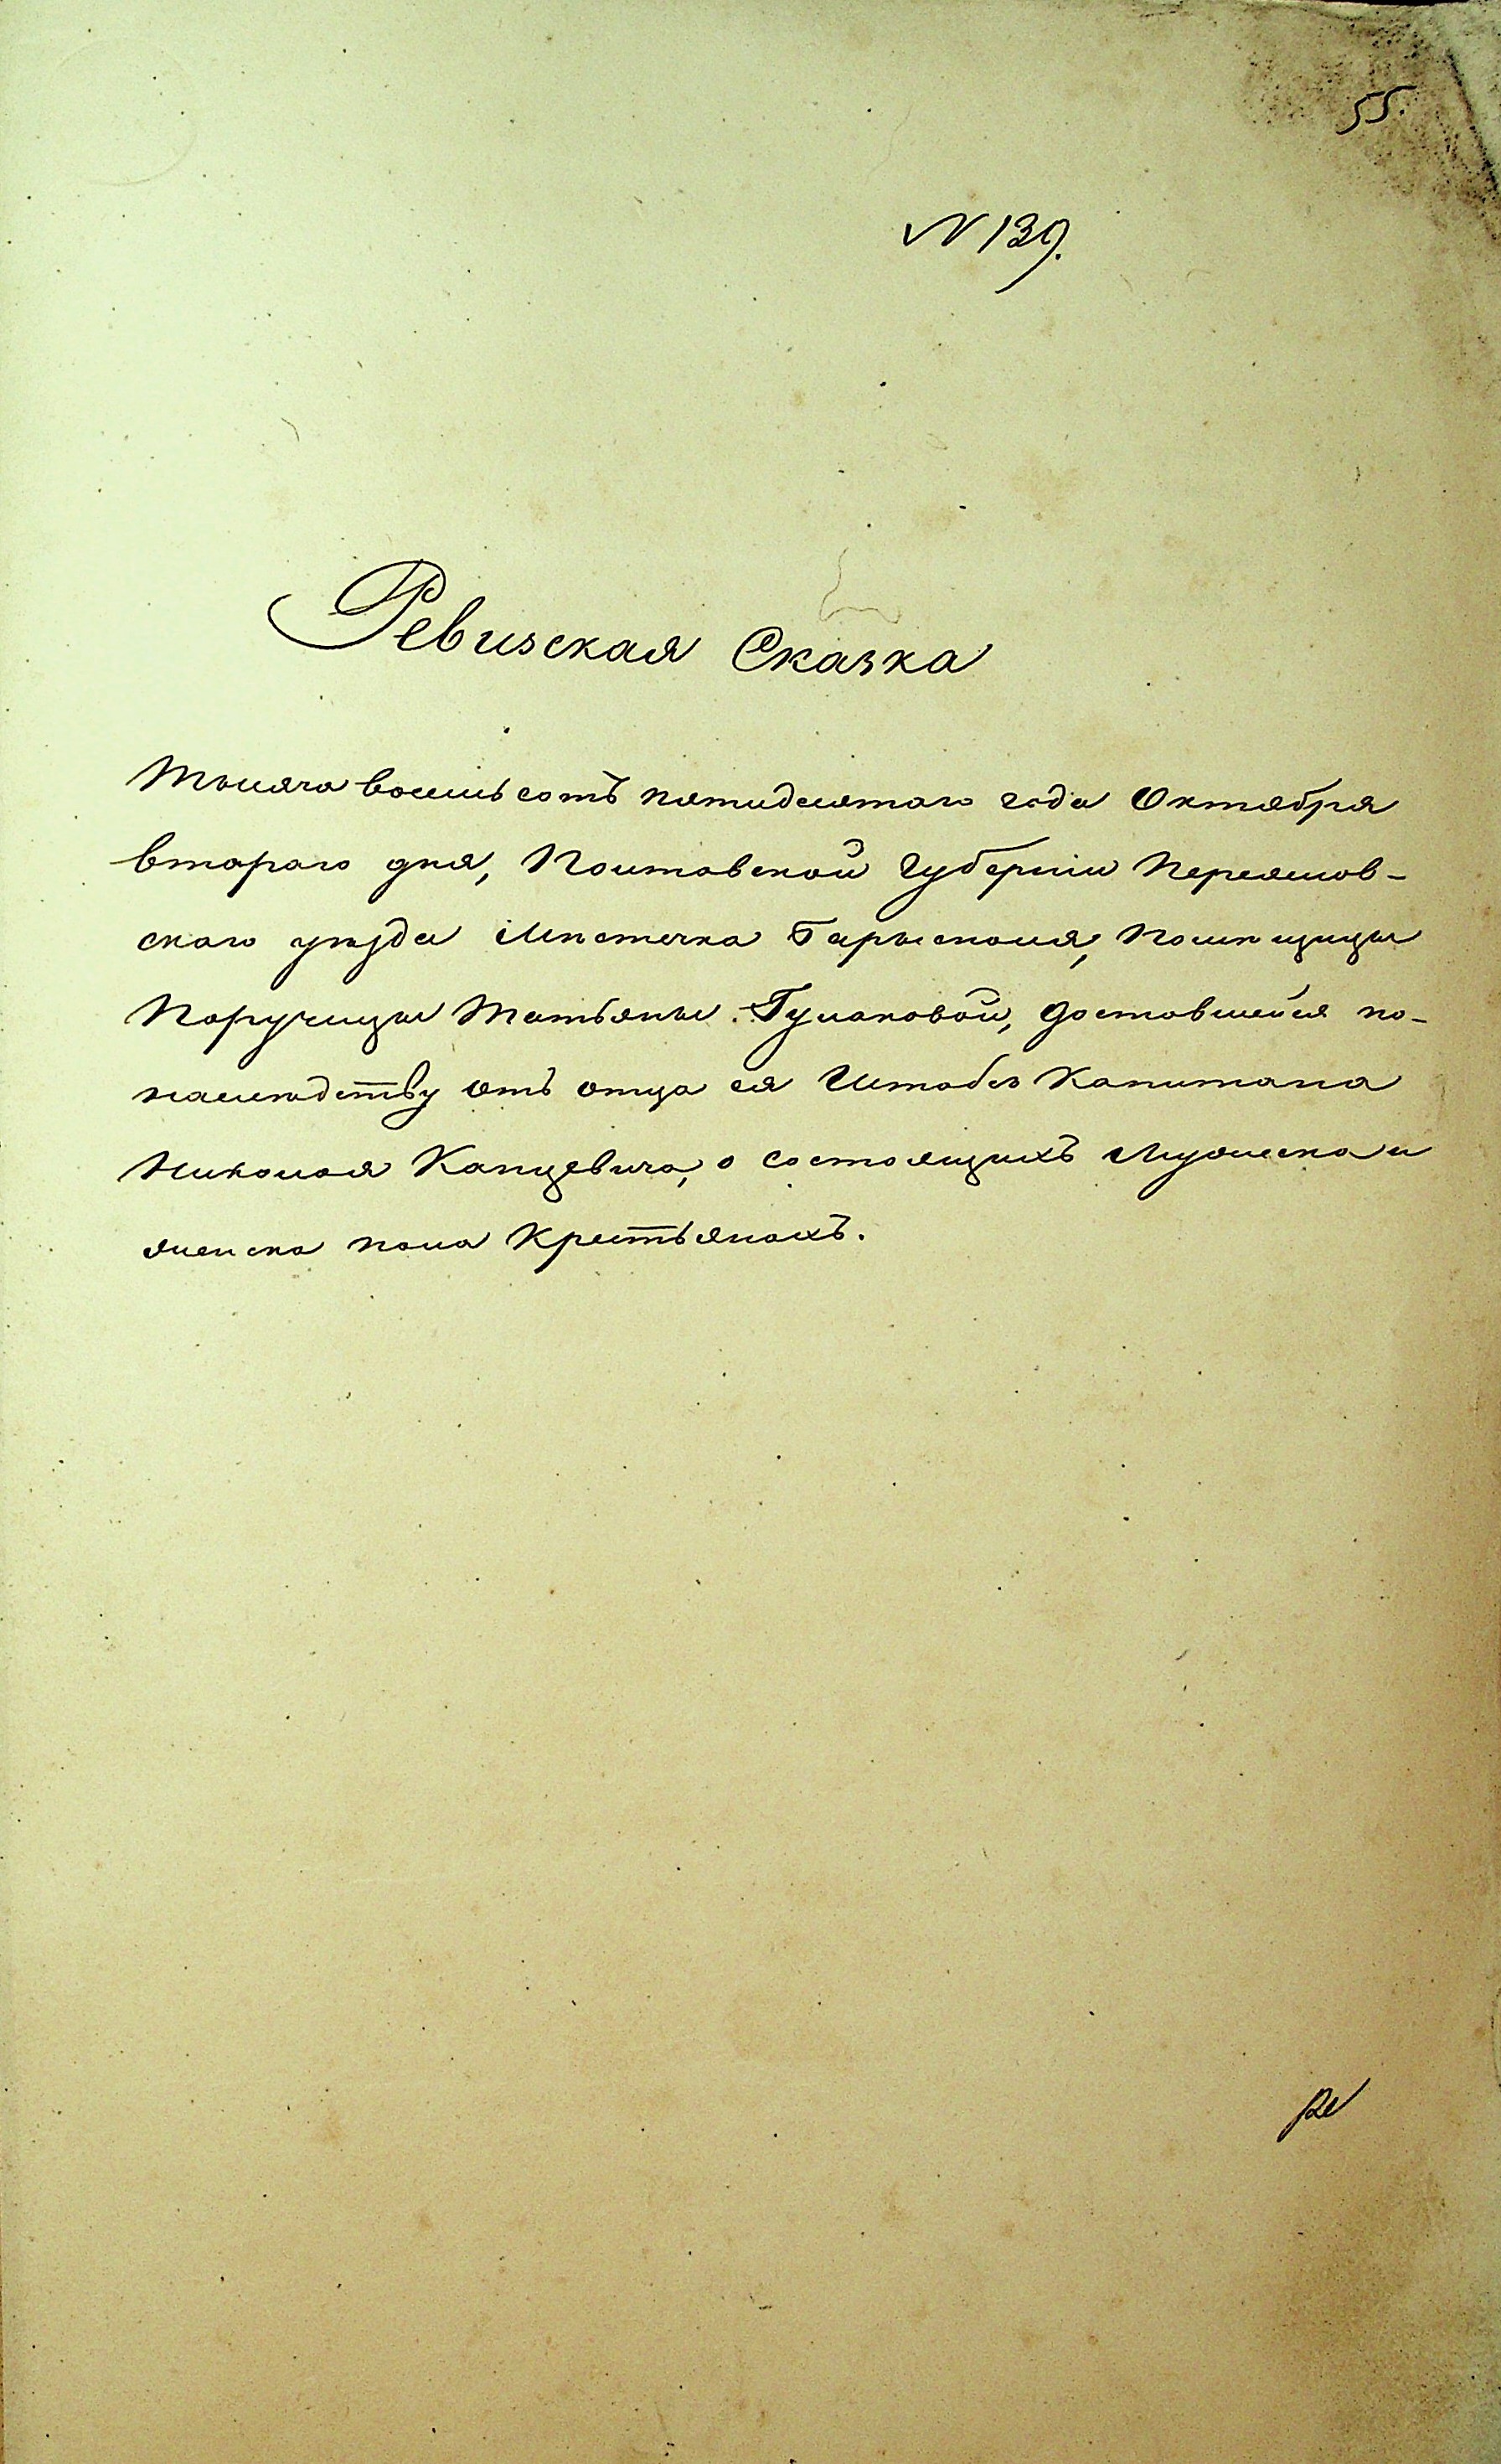 55.
№ 139.
Ревизская Сказка
Тысяча восемь сотъ пятидесятого года Октября
второго дня, Полтавской Губерніи Переяслов-
скаго уѣзда Мѣстечка Барысполя, Помѣщицы
Поручицы Татьяны Гулаковой, доставшейся по-
наслѣдству отъ отца ея Штабсъ Капитана
Николая Капцевича, о состоящихъ Мужеска и
женска пола Крестьянахъ.